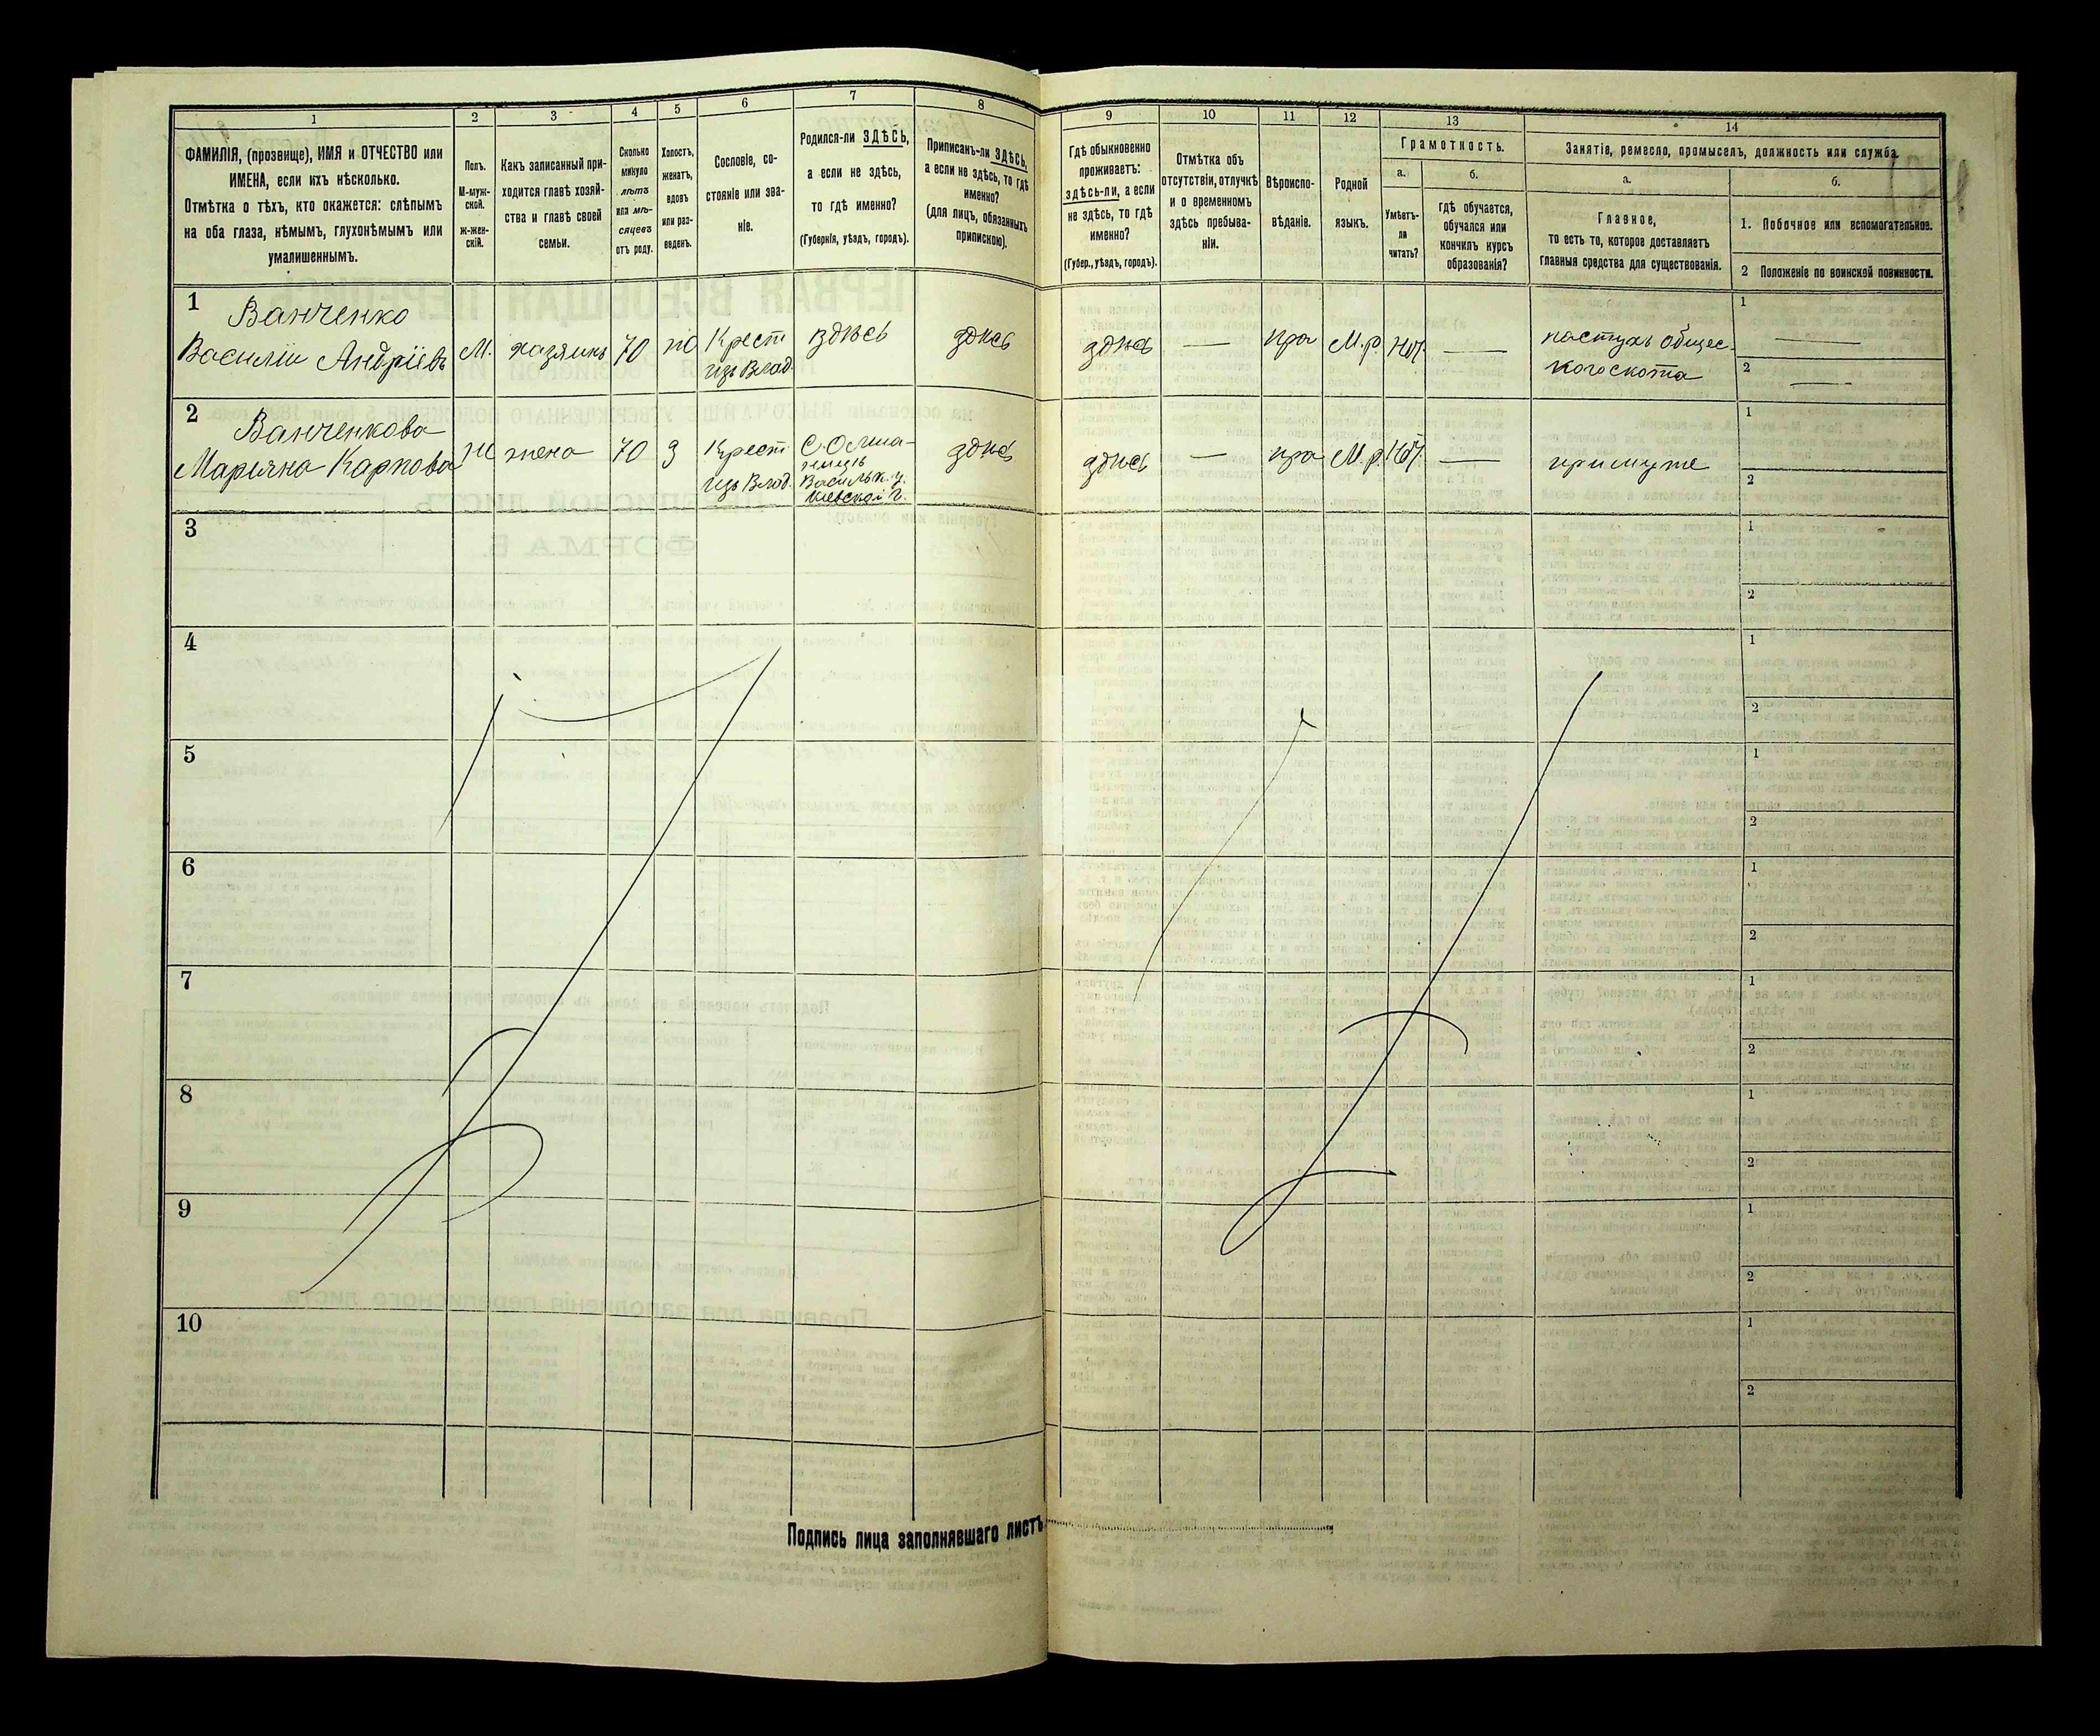 1
2
3
4
5
6
7
8
ФАМИЛІЯ, (прозвище), ИМЯ и ОТЧЕСТВО или
ИМЕНА, если ихъ нѣсколько.
Отмѣтка о тѣхъ, кто окажется: слѣпымъ
на оба глаза, нѣмымъ, глухонѣмымъ или
умалишеннымъ.
Полъ.
М-муж-
ской.
ж-жен-
скій.
Какъ записанный при-
ходится главѣ хозяй-
ства и главѣ своей
семьи.
Сколько
минуло
лѣтъ
или мѣ-
сяцевъ
отъ роду.
Холостъ,
женатъ,
вдовъ
или раз-
веденъ.
Сословіе, со-
стояніе или зва-
ніе.
Родился-ли ЗДѢСЬ,
а если не здѣсь,
то гдѣ именно?
(Губернія, уѣздъ, городъ).
Приписанъ-ли ЗДѢСЬ,
а если не здѣсь, то гдѣ
именно?
(для лицъ, обязанныхъ
припискою).
9
10
11
12
13
14
Гдѣ обыкновенно
проживаетъ:
здѣсь-ли, а если
не здѣсь, то гдѣ
именно?
(Губер., уѣздъ, городъ).
Отмѣтка объ
отсутствіи, отлучкѣ
и о временномъ
здѣсь пребыва-
ніи.
Вѣроиспо-
вѣданіе.
Родной
языкъ.
Грамотность.
а.
б.
Умѣетъ-
ли
читать?
гдѣ обучается,
обучался или
кончилъ курсъ
образованія?
Занятіе, ремесло, промыселъ, должность или служба.
а.
б.
Главное,
то есть то, которое доставляетъ
главныя средства для существованія.
1. Побочное или вспомогательное.
2 Положеніе по воинской повинности.
1
Ванченко
Василіи Андріевъ
М.
хазяинъ
70
Крест
изъ Влад.
здѣсь
здѣсь
здѣсь
—
пра
М.р.
нѣт
—
пастухъ общес-
кого скота
1
—
2
—
2
Ванченкова
Марьяна Карпова
Ж
жена
70
З
Крест
изъ Влад.
Васильк. у.
Кіевской г.
здѣсь
здѣсь
—
пра
М.р.
нѣт
—
при муже
1
2
3
1
2
4
1
2
5
1
2
6
1
2
7
1
2
8
1
2
9
1
2
10
1
2
Подпись лица заполнявшаго листъ